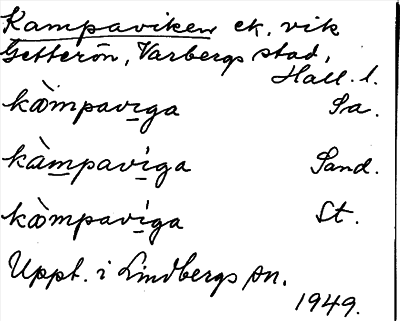 Kampaviken ck. vik
Getterön, Varbergs stad,
Hall. l.
kòmpaviga Sa.
kàmpaviga Sand.
kòmpaviga St.
Uppt. i Lindbergs sn.
1949.